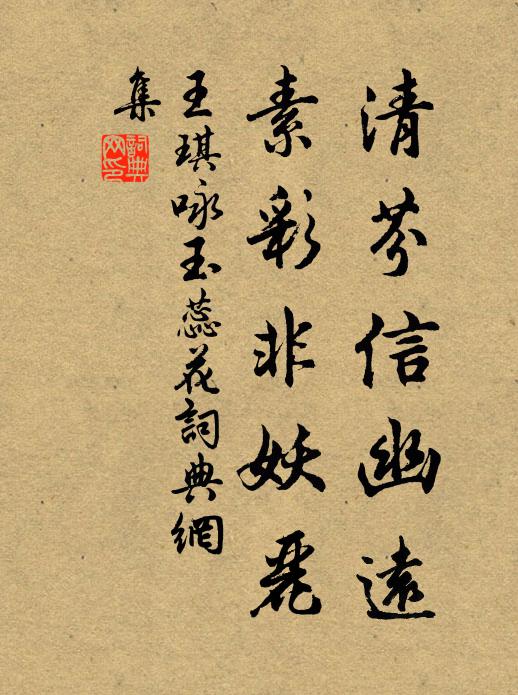 清芬信幽遠
素彩非妖麗
王琪咏玉蕊花詞典網
集
詞典網印